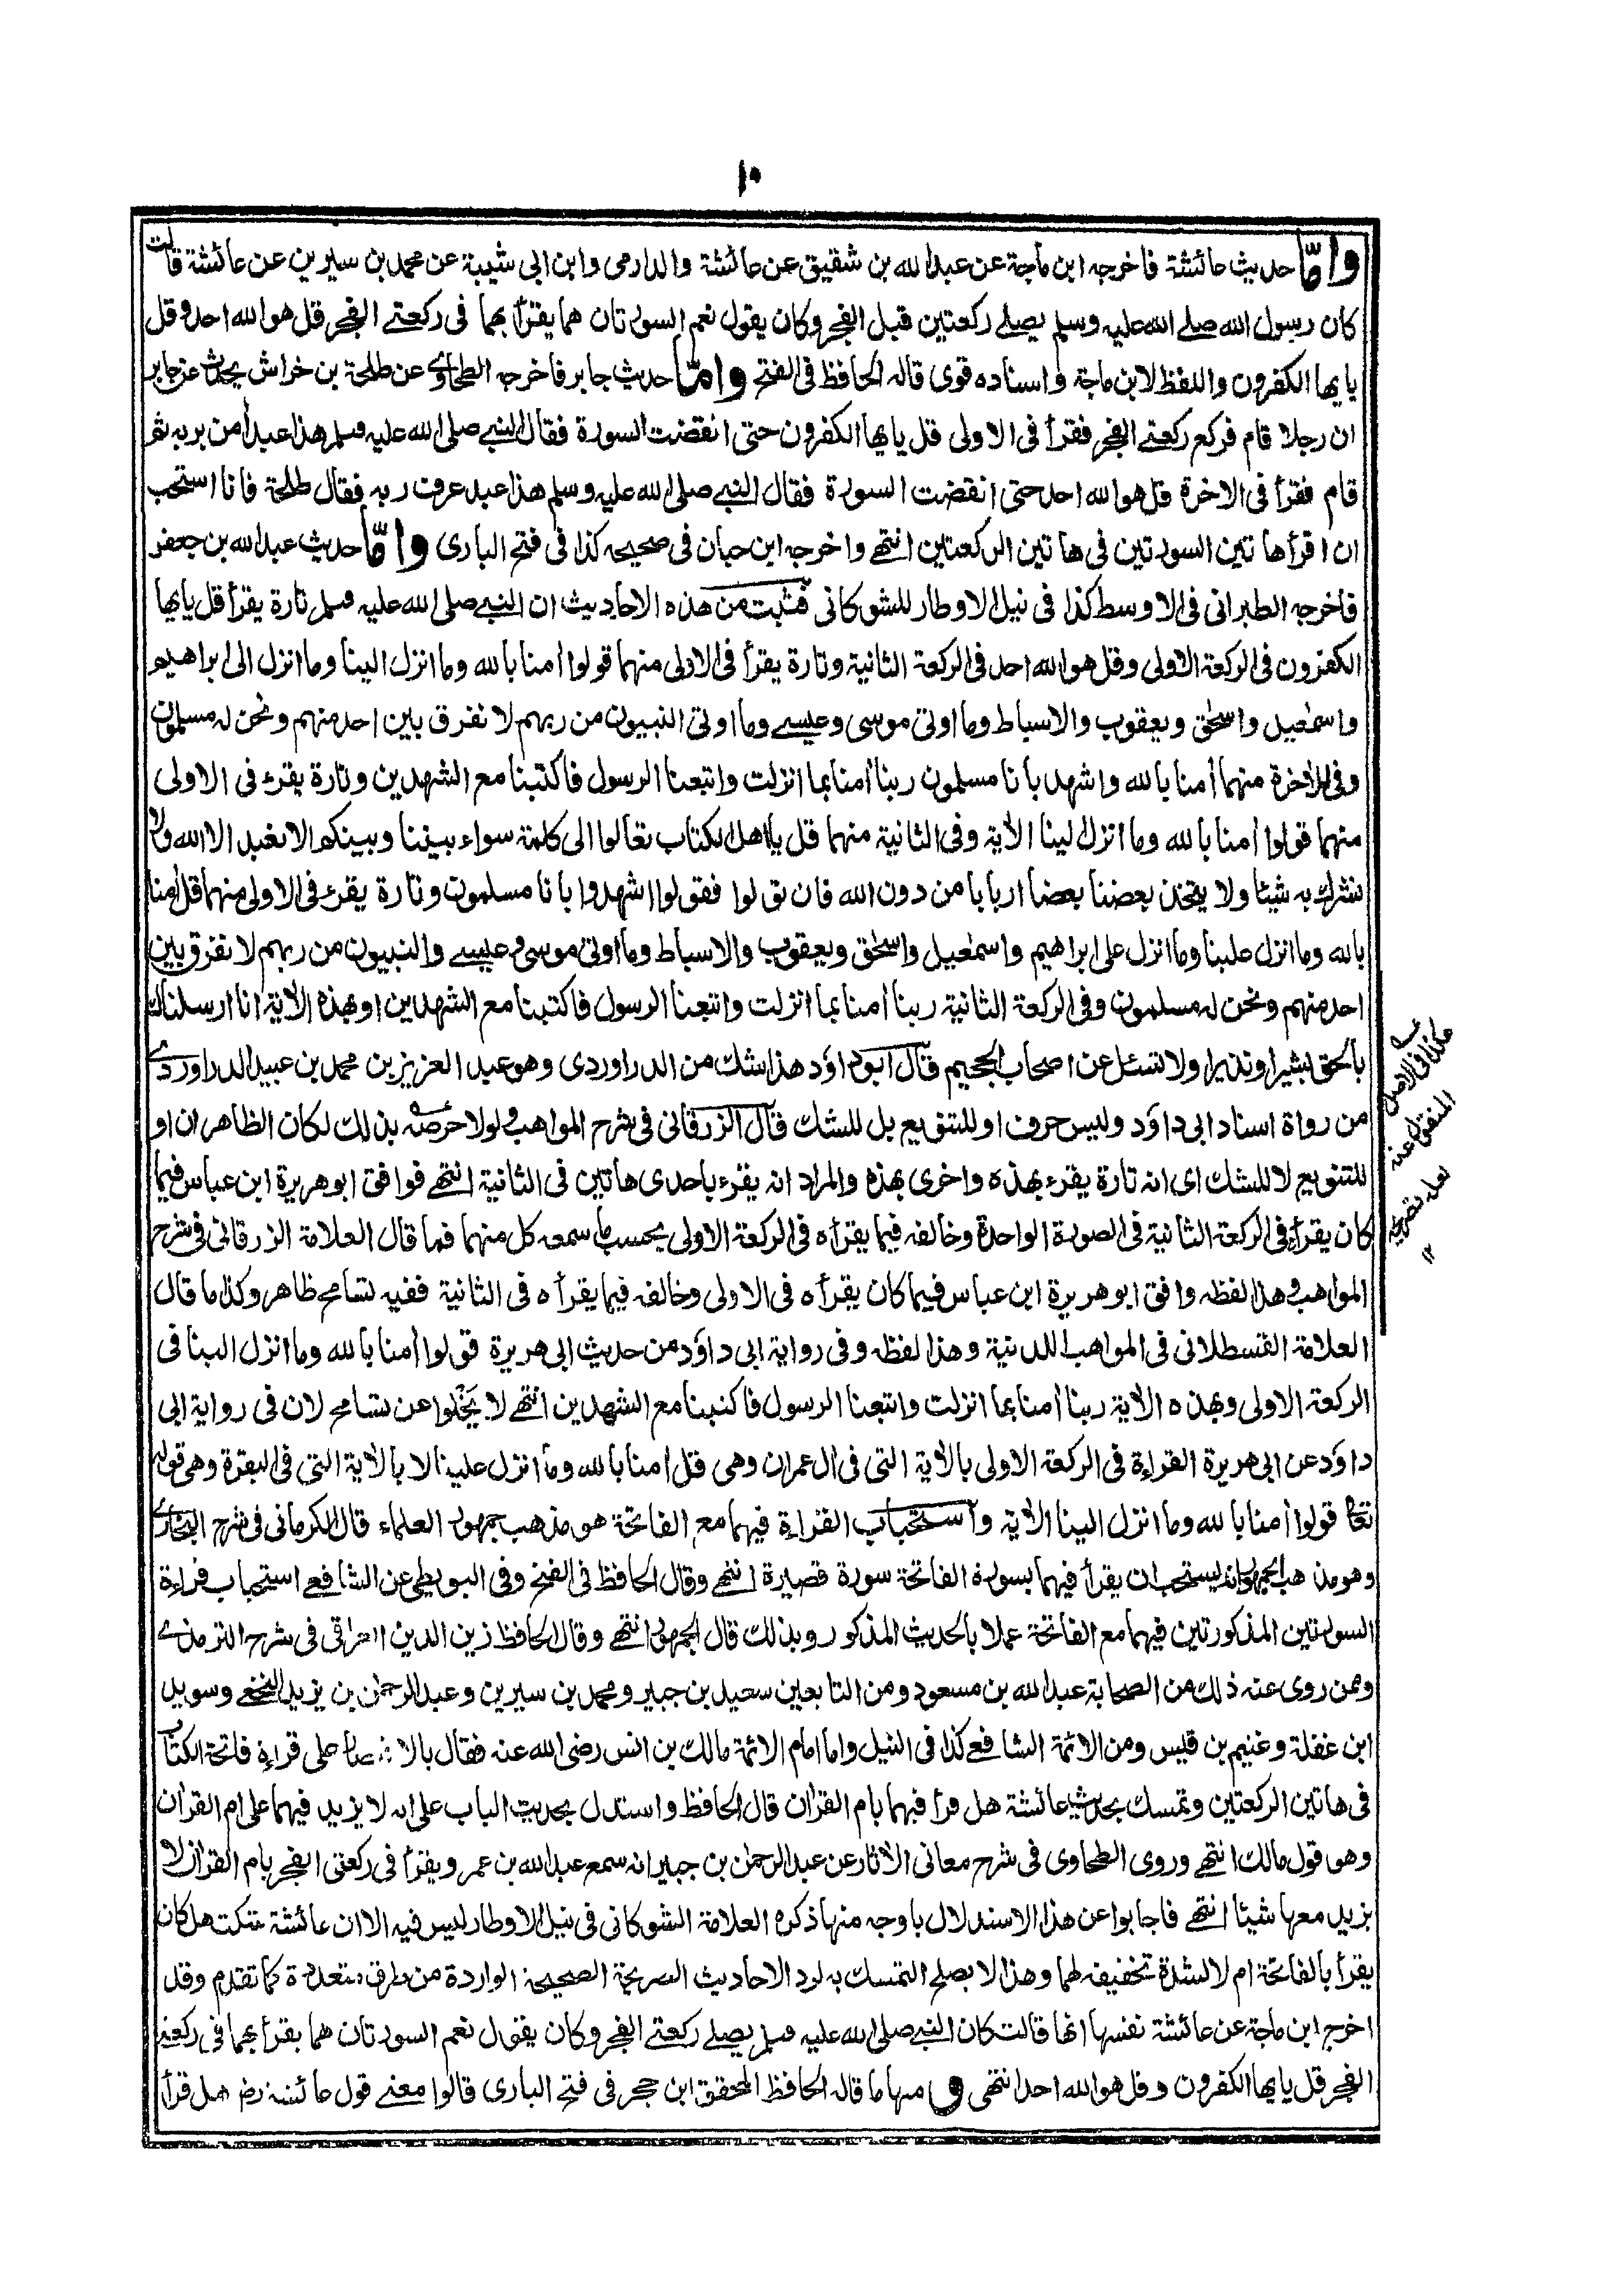 ١٠
وامّا حديث عائشة فاخرجه ابن ماجة عن عبد الله بن شقيق عن عائشة والدارمى وابن ابى شيبة عن محمد بن سيرين عن عائشة قالت
كان رسول الله صلے الله عليه وسلم يصلے ركعتين قبل الفجر وكان يقول نعم السورتان هما يقرأ بهما فى ركعتے الفجر قل هو الله احد وقل
يايها الكفرون واللفظ لابن ماجة واسناده قوى قاله الحافظ فى الفتح وامّا حديث جابر فاخرجه الطحاوى عن طلحة بن خراش يحدث عن جابر
ان رجلا قام فركع ركعتے الفجر فقرأ فى الاولى قل يايها الكفرون حتى انقضت السورة فقال النبے صلى الله عليه وسلم هذا عبد أمن بربه ثم
قام فقرأ فى الاخرة قل هو الله احد حتى انقضت السورة فقال النبے صلى الله عليه وسلم هذا عبد عرف ربه فقال طلحة فانا استحب
ان اقرأ هاتين السورتين فى هاتين الركعتين انتهے واخرجه ابن حبان فى صحيحه كذا فى فتح البارى وامّا حديث عبد الله بن جعفر
فاخرجه الطبرانى فى الاوسط كذا فى نيل الاوطار للشوكانى فثبت من هذه الاحاديث ان النبے صلى الله عليه وسلم تارة يقرأ قل يايها
الكفرون فى الركعة الاولى وقل هو الله احد فى الركعة الثانية وتارة يقرأ فى الاولى منهما قولوا أمنا بالله وما انزل الينا وما انزل الى ابراهيم
واسمٰعيل واسحٰق ويعقوب والاسباط وما اوتى موسى وعيسے وما اوتى النبيون من ربهم لا نفرق بين احد منهم ونحن له مسلمون
وفى الأخرة منهما أمنا بالله واشهد بانا مسلمون ربنا أمنا بما انزلت واتبعنا الرسول فاكتبنا مع الشهدين وتارة يقرء فى الاولى
منهما قولوا أمنا بالله وما انزل لينا الأية وفى الثانية منهما قل يااهل الكتاب تعالوا الى كلمة سواء بيننا وبينكم الا نعبد الا الله ولا
نشرك به شيئا ولا يتخذ بعضنا بعضا اربابا من دون الله فان تولوا فقولوا اشهدوا بانا مسلمون وتارة يقرء فى الاولى منهما قل أمنا
بالله وما انزل علينا وما انزل على ابراهيم واسمٰعيل واسحٰق ويعقوب والاسباط وما اوتى موسى وعيسے والنبيون من ربهم لا نفرق بين
احد منهم ونحن له مسلمون وفى الركعة الثانية ربنا أمنا بما انزلت واتبعنا الرسول فاكتبنا مع الشهدين او بهذه الأية انا ارسلناك
بالحق بشيرا ونذيرا ولا تسئل عن اصحاب الجحيم قال ابو داؤد هذا شك من الدراوردى وهو عبد العزيز بن محمد بن عبيد الدراوردے
من رواة اسناد ابى داؤد وليس حرف او للتنويع بل للشك قال الزرقانى فى شرح المواهب ولولا حرصه بذلك لكان الظاهر ان او
للتنويع لا للشك اى انه تارة يقرء بهذه واخرى بهذه والمراد انه يقرء باحدى هاتين فى الثانية انتهے فوافق ابو هريرة ابن عباس فيما
كان يقرأ فى الركعة الثانية فى الصورة الواحدة وخالفه فيما يقرأه فى الركعة الاولى بحسب ما سمعه كل منهما فما قال العلامة الزرقانى فى شرح
المواهب وهذا لفظه وافق ابو هريرة ابن عباس فيما كان يقرأه فى الاولى وخالفه فيما يقرأه فى الثانية ففيه تسامح ظاهر وكذا ما قال
العلامة القسطلانى فى المواهب اللدنية وهذا لفظه وفى رواية ابى داؤد من حديث ابى هريرة قولوا أمنا بالله وما انزل الينا فى
الركعة الاولى وبهذه الأية ربنا أمنا بما انزلت واتبعنا الرسول فاكتبنا مع الشهدين انتهے لا يخلوا عن تسامح لان فى رواية ابى
داؤد عن ابى هريرة القراءة فى الركعة الاولى بالأية التى فى ال عمران وهى قل أمنا بالله وما انزل علينا لا بالأية التى فى البقرة وهى قوله
تعالى قولوا أمنا بالله وما انزل الينا الأية واستحباب القراءة فيهما مع الفاتحة هو مذهب جمهور العلماء قال الكرمانى فى شرح البخارى
وهو مذهب الجمهور انه يستحب ان يقرأ فيهما بسورة الفاتحة سورة قصيرة انتهے وقال الحافظ فى الفتح وفى البويطى عن الشافعے استحباب قراءة
السورتين المذكورتين فيهما مع الفاتحة عملا بالحديث المذكور وبذلك قال الجمهور انتهے وقال الحافظ زين الدين العراقى فى شرح الترمذے
وممن روى عنه ذلك من الصحابة عبد الله بن مسعود ومن التابعين سعيد بن جبير ومحمد بن سيرين وعبد الرحمٰن بن يزيد النخعے وسويد
ابن غفلة وغنيم بن قيس ومن الائمة الشافعے كذا فى النيل واما امام الائمة مالك بن انس رضى الله عنه فقال بالاقتصار على قراءة فاتحة الكتاب
فى هاتين الركعتين وتمسك بحديث عائشة هل قرأ فيهما بام القران قال الحافظ واستدل بحديث الباب على انه لا يزيد فيهما على ام القران
وهو قول مالك انتهے وروى الطحاوى فى شرح معانى الاثار عن عبد الرحمٰن بن جبير انه سمع عبد الله بن عمر ويقرأ فى ركعتى الفجر بام القران لا
يزيد معها شيئا انتهے فاجابوا عن هذا الاستدلال باوجه منها ذكره العلامة الشوكانى فى نيل الاوطار ليس فيه الا ان عائشة شكت هل كان
يقرأ بالفاتحة ام لا لشدة تخفيفه لهما وهذا لا يصلح التمسك به لرد الاحاديث الصريحة الصحيحة الواردة من طرق متعددة كما تقدم وقد
اخرج ابن ماجة عن عائشة نفسها انها قالت كان النبے صلى الله عليه وسلم يصلے ركعتے الفجر وكان يقول نعم السورتان هما يقرأ بهما فى ركعتے
الفجر قل يايها الكفرون وقل هو الله احد انتهى ومنها ما قاله الحافظ المحقق ابن حجر فى فتح البارى قالوا معنے قول عائشة رض هل قرأ
هكذا فى الاصل
المنقول عنه
لعله تصريحه
١٢